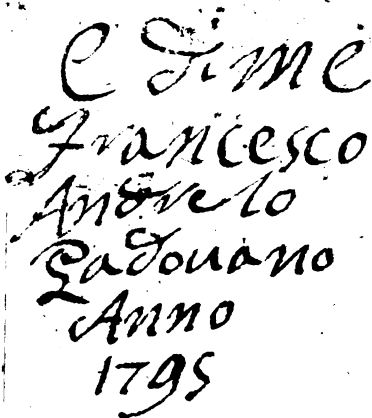 E di me
Francesco
Andreto
Padovano
Anno
1795